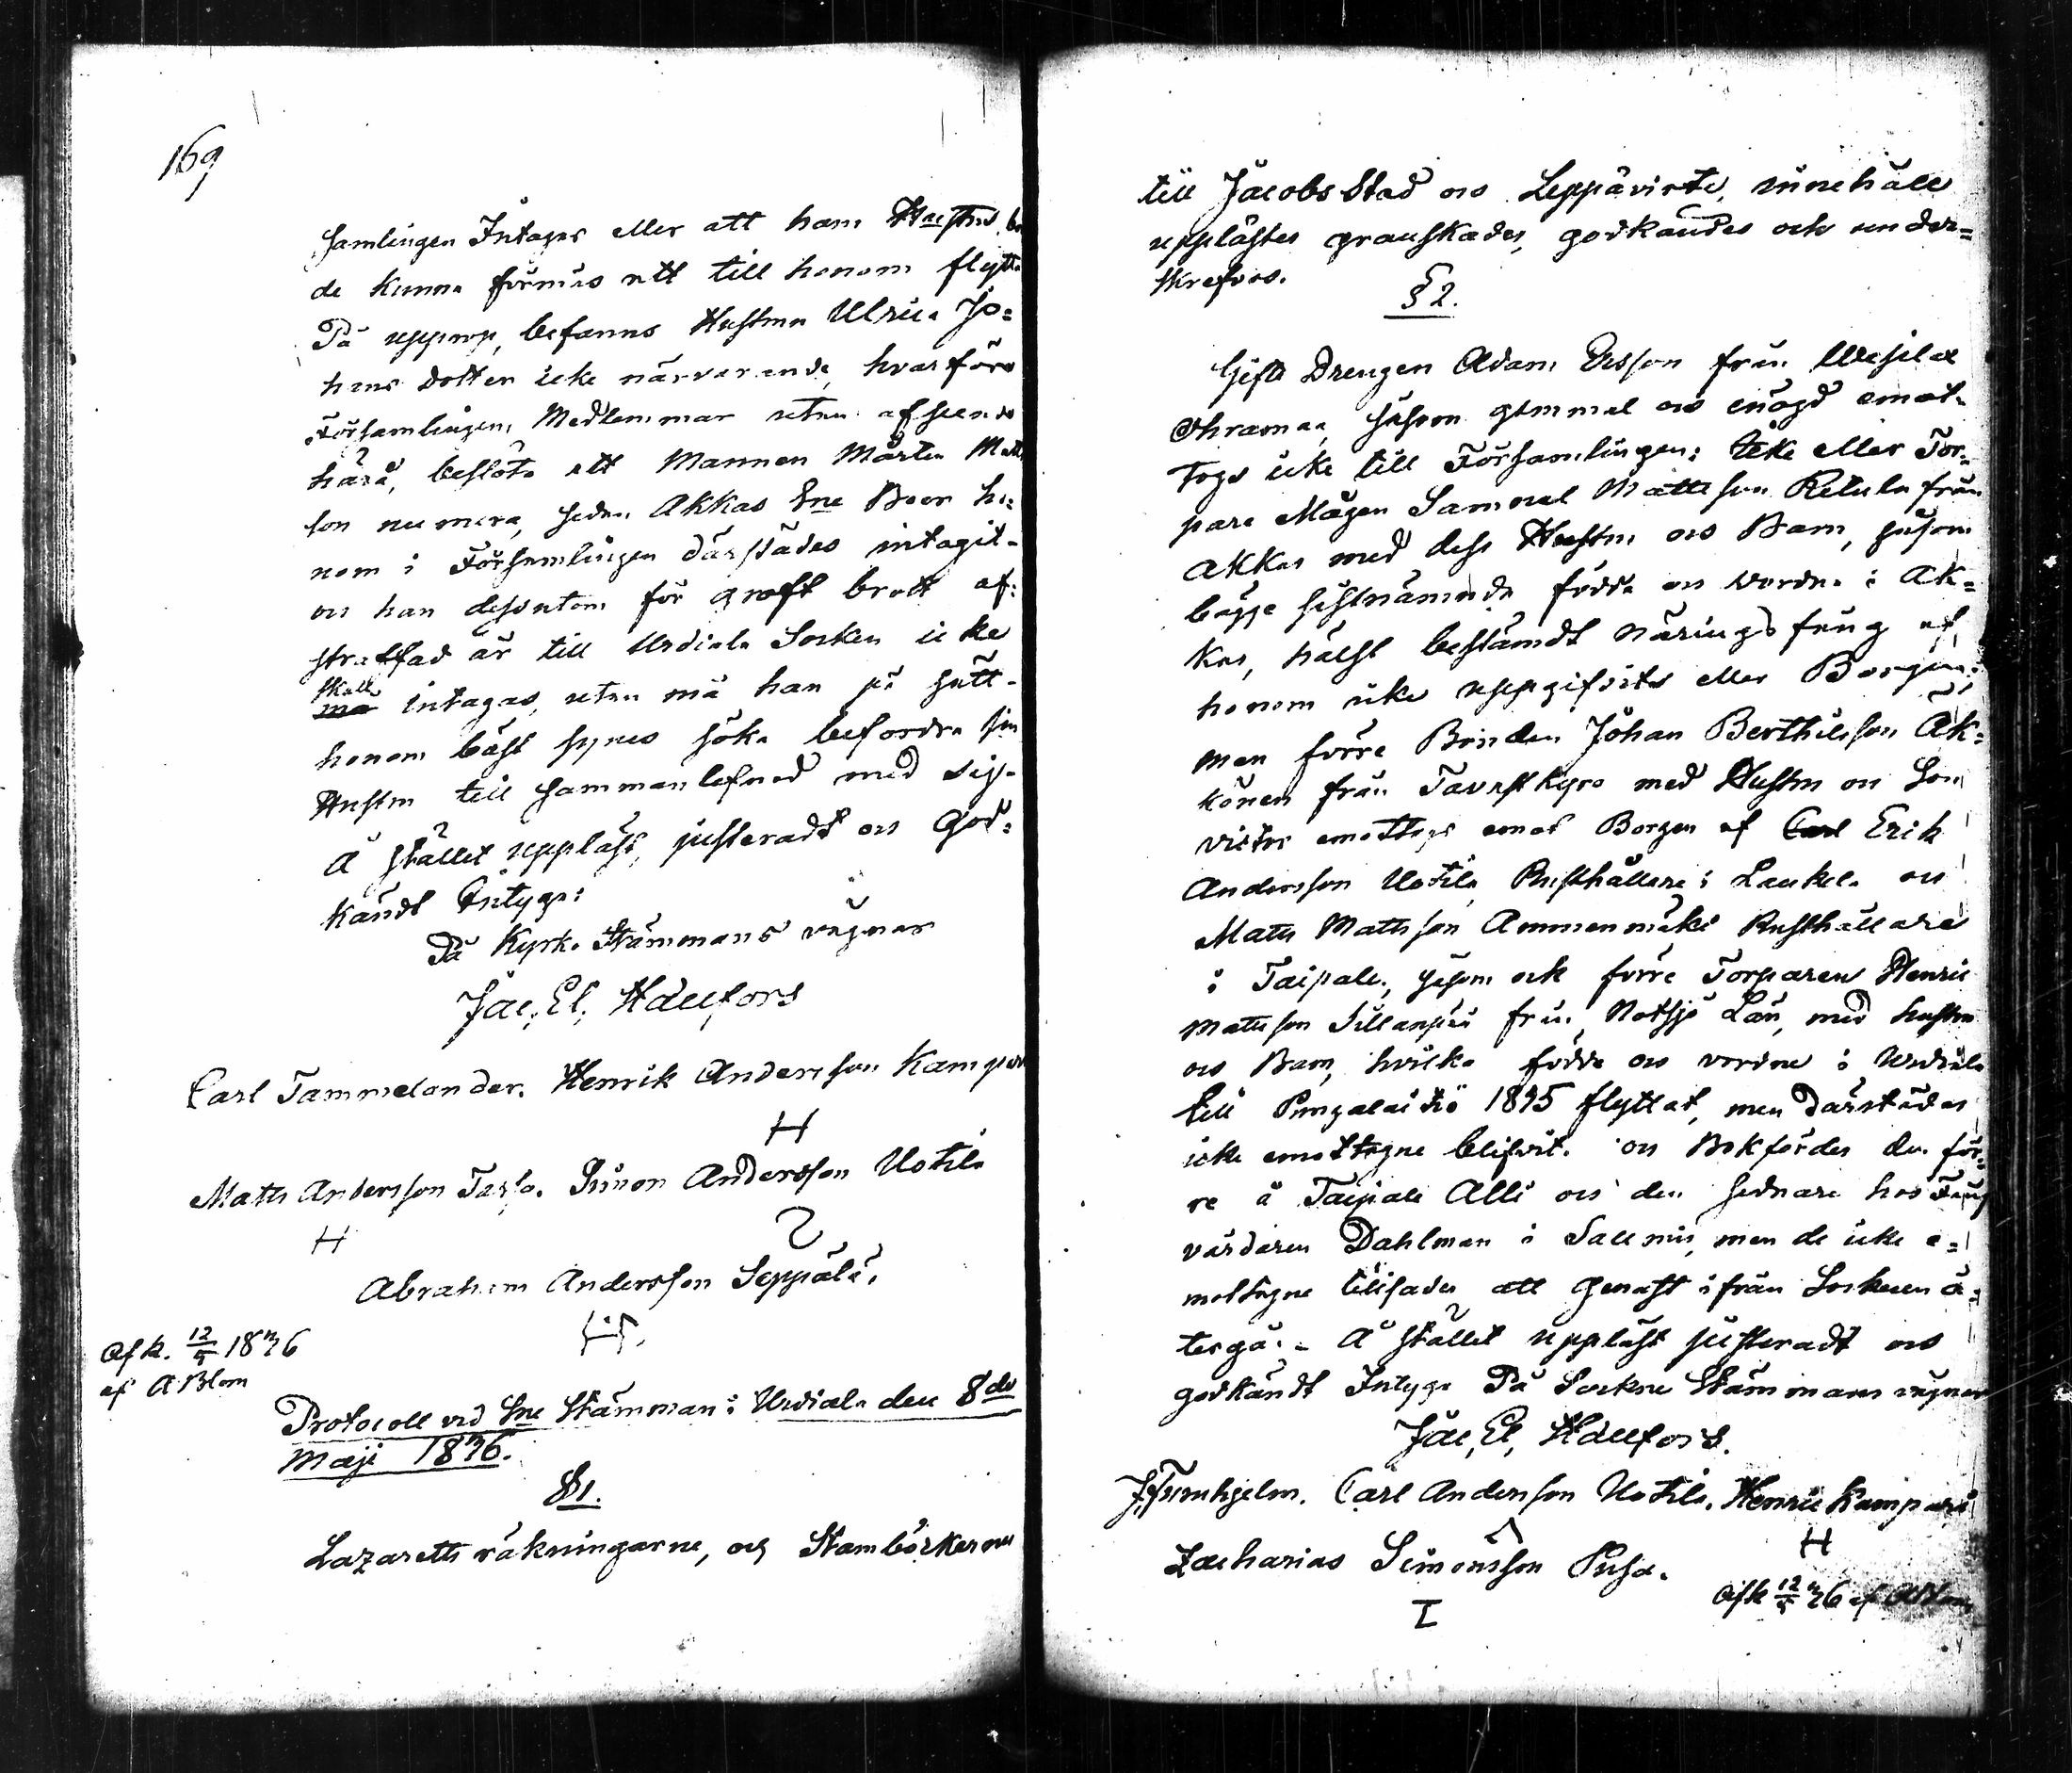 169
samlingen Intages eller att ham Hustru bö
de kunna förmås att till honom flytta
På upprop, befanns Hustrun Ulrica Jo=
hans dotter icke närvarande, hvarföre
Församlingens Medlemmar utan afseende
härå, beslöto att Mannen Mårten Matts
son numera, sedan Akkas Sne Boer ho=
nom i Församlingen därstädes intagit
och han dessutom för groft brott af=
straffad är till Urdiala Socken icke
skall
må intagas, utan må han på sätt
honom bäst synes söka befordra sin
Hustru till sammanlefnad med sig.
Å stället uppläst, justeradt och God=
kändt Intyga:
På Kyrko Stämmans vägnar
Jac. El. Hällfors
Carl Tammelander. Henrik Andersson Kampari
H
Matts Andersson Simon Andersson Uotila
H
Abraham Andersson Seppälä.
Afk. 12/5 1836
af A Blom
Protocoll vid Sne Stämman i Urdiala den 8de
Maji 1836.
§ 1.
Lazaretts räkningarne, och Stambörkerne
till Jacobs Stad och Leppävirta, innehåll
upplästes granskades, godkändes och under=
skrefvos.
§ 2.
Gifte Drengen Adam Ersson från Wesilax
såsom gammal och enögd emot
togs icke till Församlingen: icke eller Tor=
pare Mågen Samuel Mattsson Retula från
Akkas med dess Hustru och Barn, såsom
bägge sistnämnda födda och vordna i Ak=
kas, hälst bestämdt näringsfång af
honom icke uppgifvits eller Borgen;
men förre Bonden Johan Berthilsson Äk=
könen från Tavastkyro med Hustru och Son
Victor emottogs emot Borgen af Carl Erik
Andersson Uotila, Rusthållare i Laukela och
Matts Mattsson Ammenmäki Rusthållare
i Taipale, såsom ock förre Torparen Henric
Mattsson Sillanpää från Notsjö Län, med hustru
och Barn, hvilka födde och vordne i Urdiala
till Pungalaitiö 1835 flyttat, men därstädes
icke emottagne blifvit. och Bokfördes den för=
re å Taipale Alli och den sednare hos Fång
vårdaren Dahlman i Salmis, men de icke e=
mottagne tillsades att genast ifrån Socknen å=
tergå. Å stället uppläst justeradt och
godkändt Intyga På Sockne Stämmans vägnar
Jac. El. Hällfors.
Carl Andersson Uotila. Henric Kampari
H
Zacharias Simonsson Pusa.
I
Afk 12/5 36 af A Blom